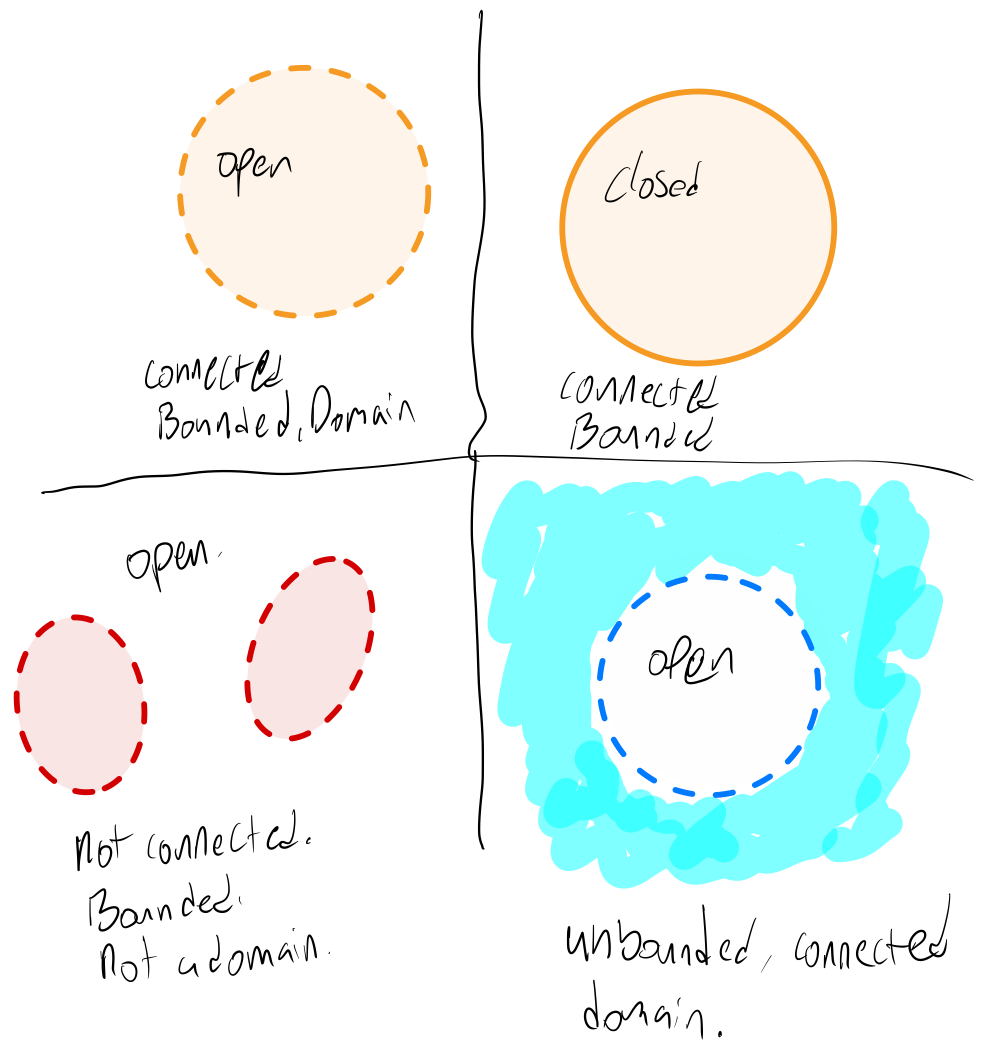 open
connected
Bounded, Domain
closed
connected
Bounded
open.
not connected.
Bounded.
Not a domain.
open
unbounded, connected
domain.